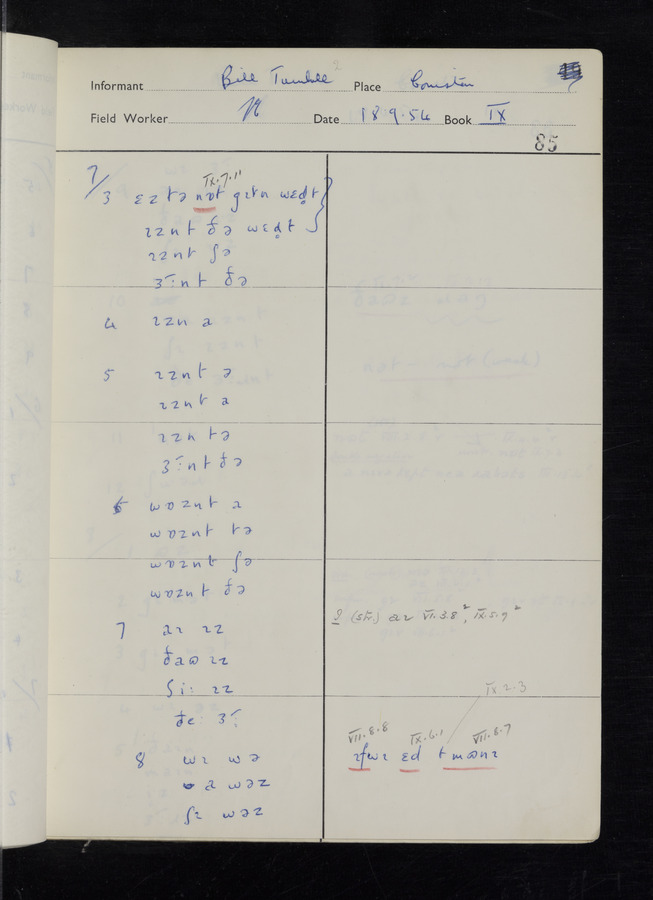 Informant Bill Place Coniston
Field Worker Date 18.9.54 Book IX
85
7/
IX.7.11
3 ɛz tə nɒt gɪtn wɛd̥t
ɪznt ðə wɛd̥t
ɪznt ʃə
ɜ:nt ðə
4 ɪzn a
5 ɪznt ə
ɪznt a
ɪzn tə
ɜ:nt ðə
6 wɒznt a
wɒznt tə
wɒznt ʃə
wɒznt ðə
7 aɪ ɪz
ðaʊ ɪz
ʃi: ɪz
ðe: ɜ:
8 wɪ wə
a wəz
ʃɪ wəz
(str.) aɪ VI.3.8², IX.5.9²
IX 2.3
VII.8.8 IX.6.1 VIII.8.7
ɪfwɪ ɛd t mʊnɪ